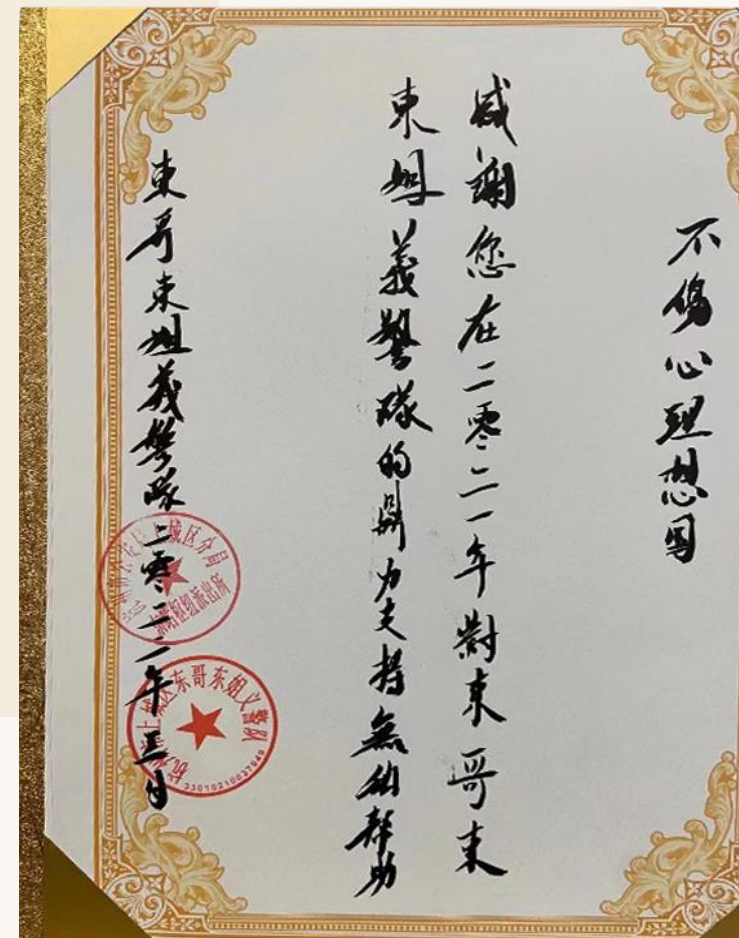 不傷心理想國
感謝您在二零二一年對東哥東
東姐義警隊的鼎力支持無私幫助
東哥東姐義警隊二零二二年三月
上城区分局
派出所
杭州市上城区东哥东姐义警队
33010210037949